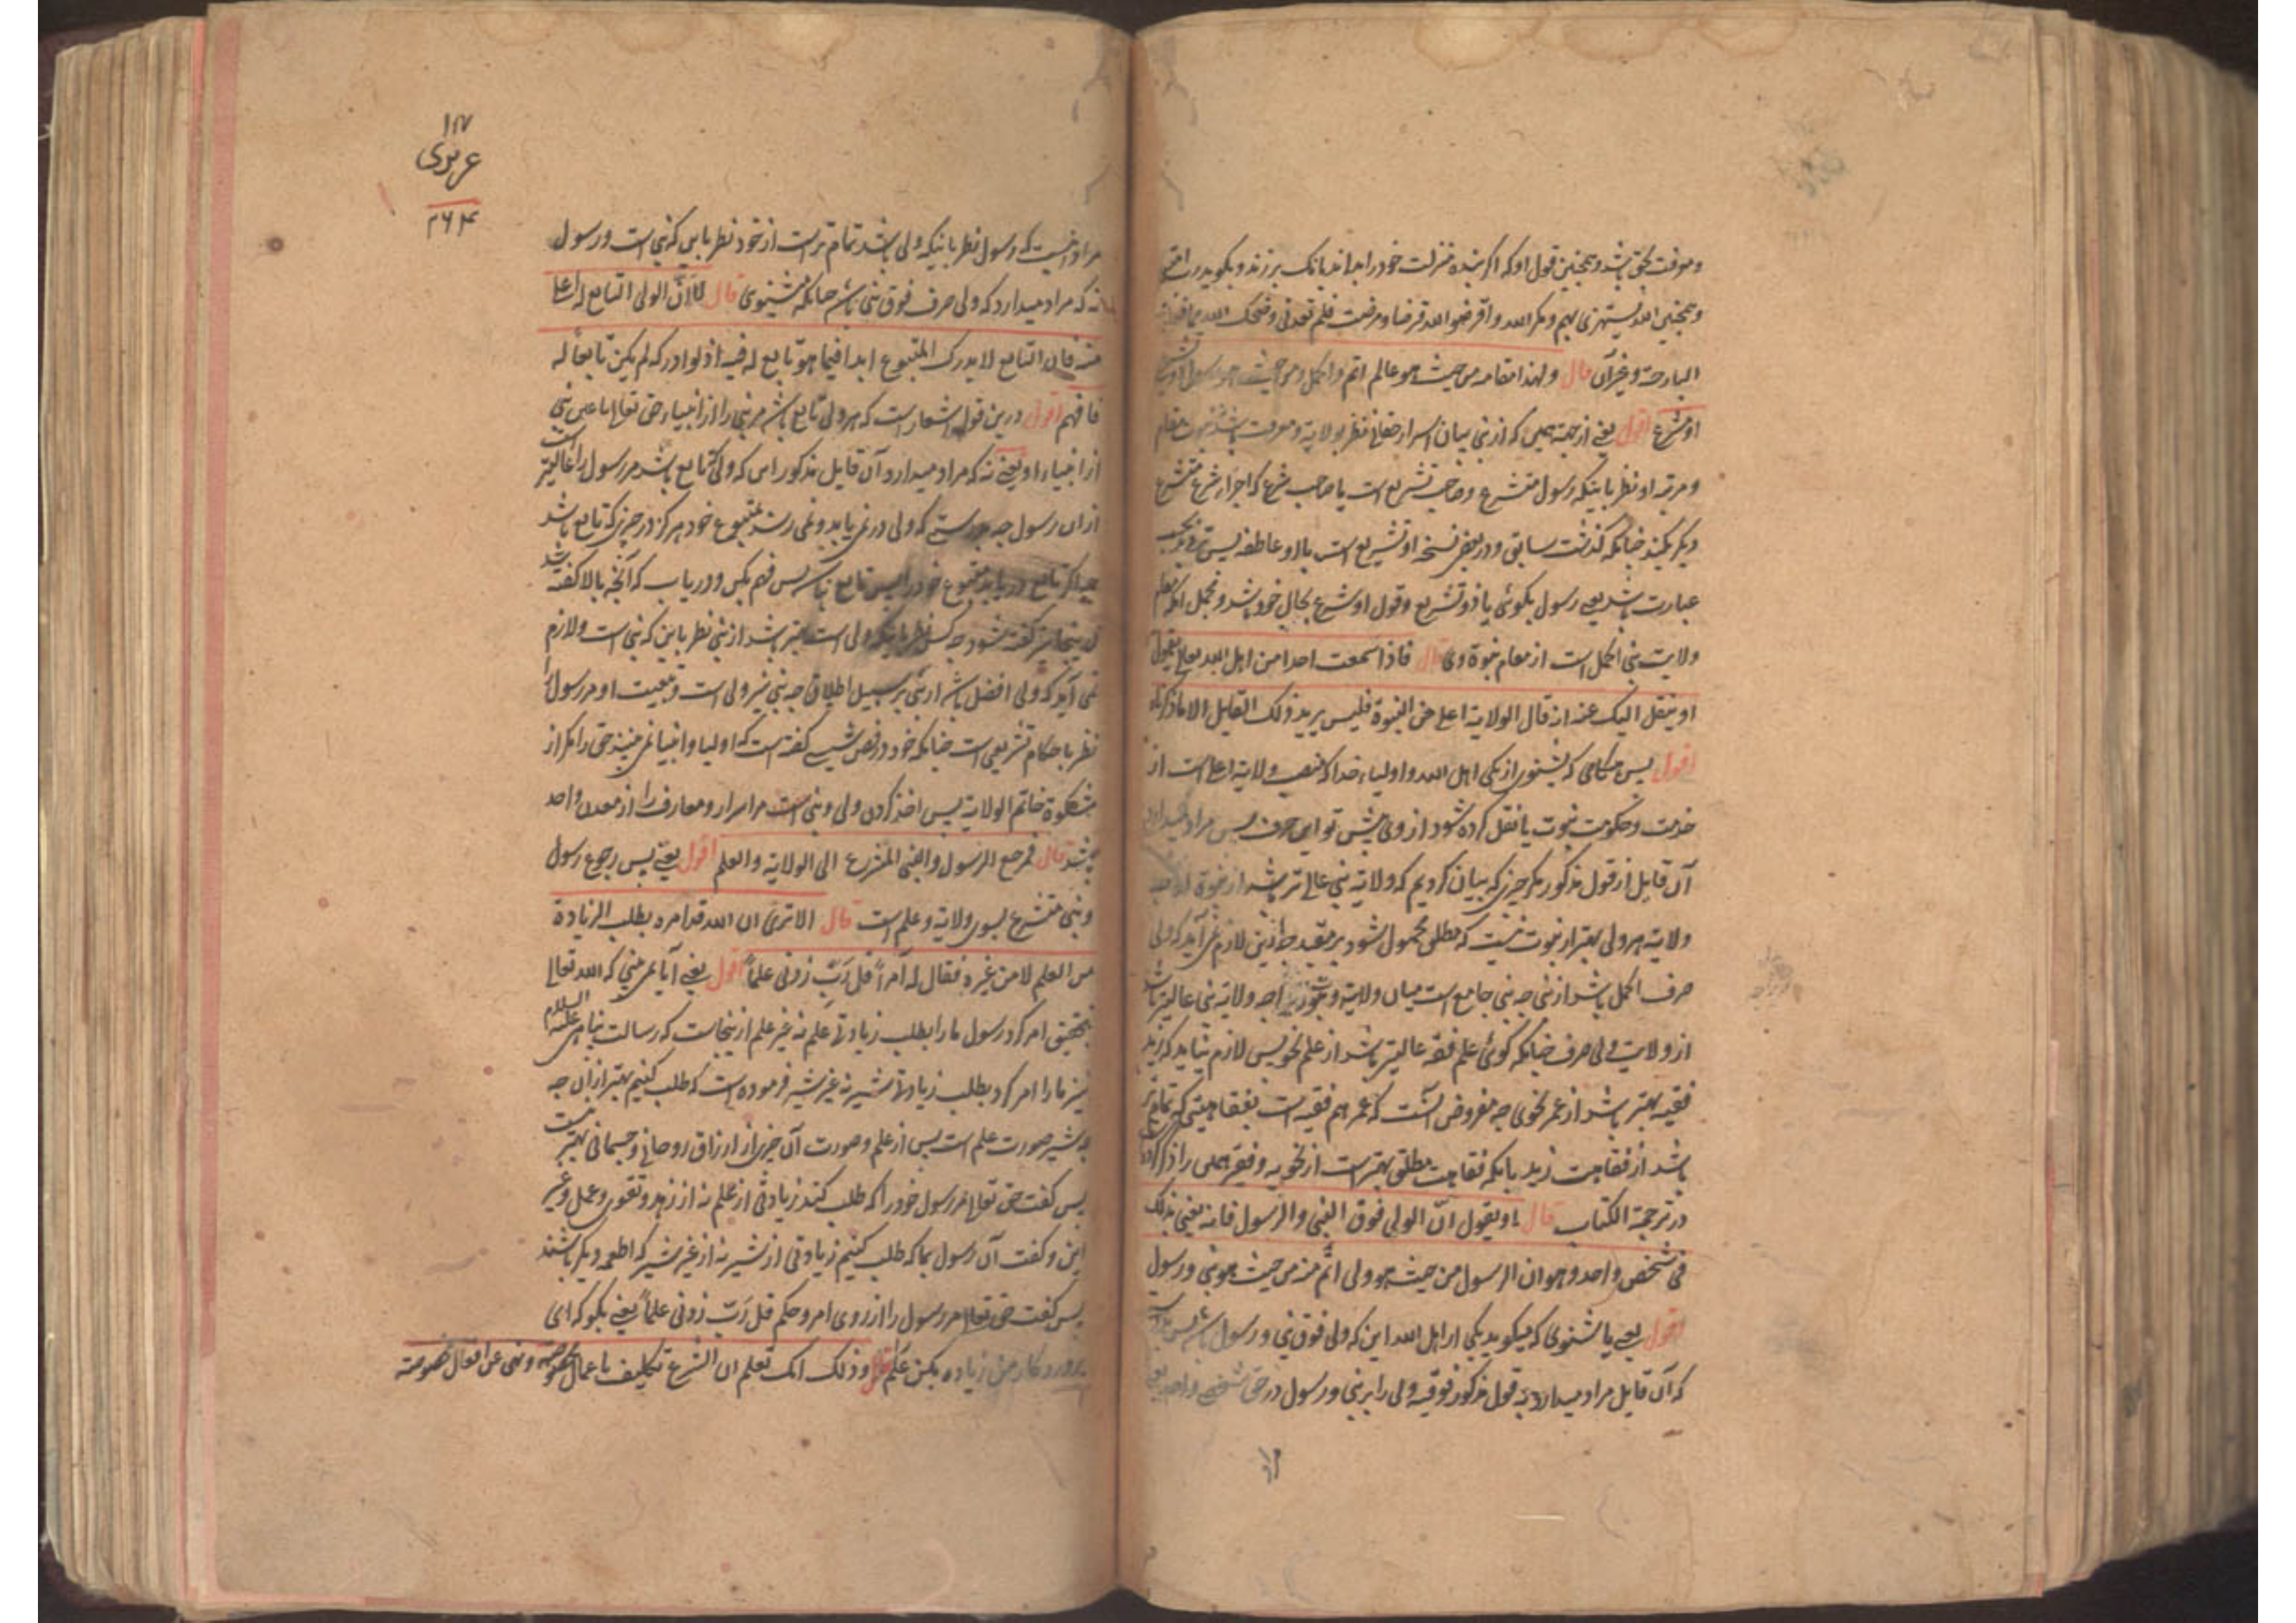 وموقت بحق باشد و همچنین قول او که اگر بنده منزلت خود را بداند بانک برزند و بگوید
وهمچنین الله یستهزی بهم ومکر الله واقرضوا الله قرضا ومرضت فلم تعدنی وضحک الله
البارحة و غیر آن قال ولهذا مقامه من حیث هو عالم اتم واکمل ومن حیث هو رسول
او شرع اقول یعنی از جهة همین که از نبی بیان اسرار حقانی نظر بولایة و معرفت باشد
ومرتبه او نظر باینکه رسول متشرع وصاحب تشریع است یا صاحب شرع که اجراء شرع متشرع
دیگر بکند چنانکه گذشت سابق و در بعضی نسخه او تشریع است باو عاطفه پس
عبارت باشد یعنی رسول بگوئی یا ذو تشریع و قول او شرع بحال خود باشد ومحمل
ولایت نبی اکمل است از مقام نبوة وی قال فاذا سمعت احدا من اهل الله تعالی یقول
او ینقل الیک عنه انه قال الولایة اعلی من النبوة فلیس یرید ذلک القایل الا ما ذکرناه
اقول پس هنگامی که بشنوی از یکی اهل الله و اولیاء خدا که منصب ولایة اعلی است از
خدمت و حکومت نبوت یا نقل کرده شود از وی پیش تو این حرف پس مراد
آن قایل از قول مذکور مگر چیزی که بیان کردیم که ولایة نبی عالی تر باشد از نبوة
ولایة هر ولی بهتر از نبوت نیست که مطلق محمول شود بر مقید چه ازین لازم نمی آید که ولی
صرف اکمل باشد از نبی چه نبی جامع است میان ولایة و نبوت چه ولایة نبی عالیتر باشد
از ولایت ولی صرف چنانکه گوئی علم فقه عالیتر باشد از علم نحو پس لازم نیاید که زید
فقیه بهتر باشد از عمر نحوی چه مفروض آنست که عمر هم فقیه است بفقاهتی که تمام تر
باشد از فقاهت زید با آنکه فقاهت مطلق بهتر است از نحویه و فقیر همین را ذکر کرده
در ترجمة الکتاب قال او یقول ان الولی فوق النبی والرسول فانه یعنی بذلک
فی شخص واحد وهو ان الرسول من حیث هو ولی اتم منه من حیث هو نبی ورسول
اقول یعنی یا بشنوی که میگوید یکی از اهل الله این که ولی فوق نبی و رسول باشد پس
که آن قایل مراد میدارد به قول مذکور فوقیة ولی را بر نبی ورسول در حق شخص واحد یعنی
۱۸۷
۲۶۴
مراد اینست که رسول نظر باینکه ولی باشد تمام تر است از خود نظر باین که نبی است ورسول
نه که مراد میدارد که ولی صرف فوق نبی باشد چنانکه بشنوی قال لا ان الولی التابع له اعلی
منه فان التابع لا یدرک المتبوع ابدا فیما هو تابع له فیه اذ لو ادرکه لم یکن تابعا له
فافهم اقول درین قول اشعار است که هر ولی تابع باشد مر نبی را از انبیاء حق تعالی
از انبیاء او یعنی نه که مراد میدارد آن قایل مذکور این که ولی که تابع باشد مر رسول را عالیتر است
ازان رسول چه بدرستی که ولی در نمی یابد و نمی رسد متبوع خود هرگز در چیزی که تابع باشد
چه اگر تابع دریابد متبوع خود را پس تابع نباشد پس فهم بکن و دریاب که آنچه بالا گفته شد
اینجا نیز گفته شود چه کس نظر باینکه ولی است بهتر باشد از نبی نظر باین که نبی است و لازم
نمی آید که ولی افضل باشد از نبی بر سبیل اطلاق چه نبی نیز ولی است و تبعیت او مر رسول را
نظر باحکام تشریعی است چنانکه خود در فص شیث گفته است که اولیا و انبیا نمی بینند حق را مگر از
مشکوة خاتم الولایة پس اخذ کردن ولی و نبی است مر اسرار و معارف را از معدن واحد
باشد قال فمرجع الرسول والنبی المشرع الی الولایة والعلم اقول یعنی پس رجوع رسول
ونبی متشرع بسوی ولایة و علم است قال الا تری ان الله قد امره بطلب الزیادة
من العلم لا من غیره فقال له آمرا قل رب زدنی علما اقول یعنی آیا نمی بینی که الله تعالی
بتحقیق امر کرد رسول ما را بطلب زیادتی علم نه غیر علم ازینجاست که رسالت پناهی علیه السلام
نیز ما را امر کرد بطلب زیادتی شیر نه غیر شیر فرموده است که طلب کنیم بهتر ازان چه
که شیر صورت علم است پس از علم و صورت آن چیزی از ارزاق روحانی و جسمانی بهتر نیست
پس گفت حق تعالی مر رسول خود را که طلب کند زیادتی از علم نه از زهد و تقوی و عمل و غیر
این و گفت آن رسول بما که طلب کنیم زیادتی از شیر نه از غیر شیر که اطعمه دیگر باشند
پس گفت حق تعالی مر رسول را از روی امر و حکم قل رب زدنی علما یعنی بگو که ای
پروردگار من زیاده بکن علم قال وذلک انک تعلم ان الشرع تکلیف باعمال مخصوصه ونهی عن افعال مخصوصة